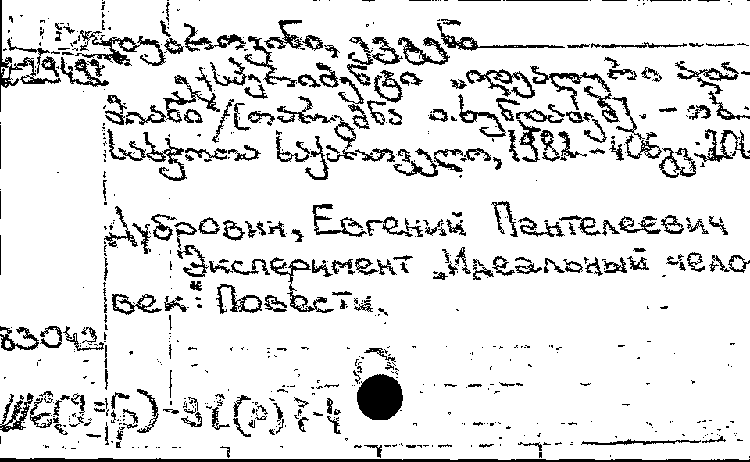 დუბროვინი, ევგენი
ექსპერიმენტი „იდეალური ადა-
მიანი" / [თარგმნა ი. ხუნდაძემ]. – თბ.:
საბჭოთა საქართველო, 1982. – 406გვ.;
Дубровин, Евгений Пантелеевич
Эксперимент „Идеальный чело-
век": Повести.
83042